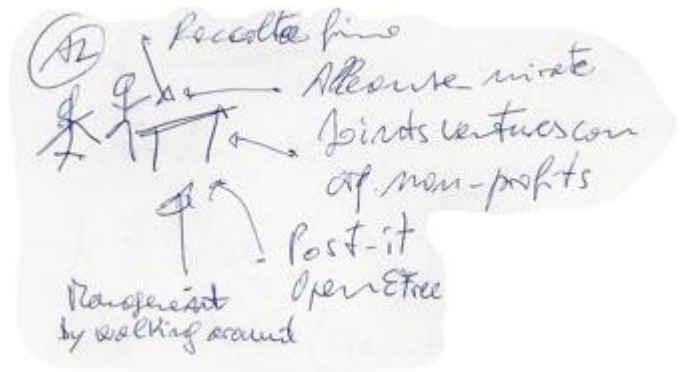 A2
Raccolta fino
Alleanze mirate
Joints ventures con
org. non-profits
Post-it
Open & Free
Management
by walking around